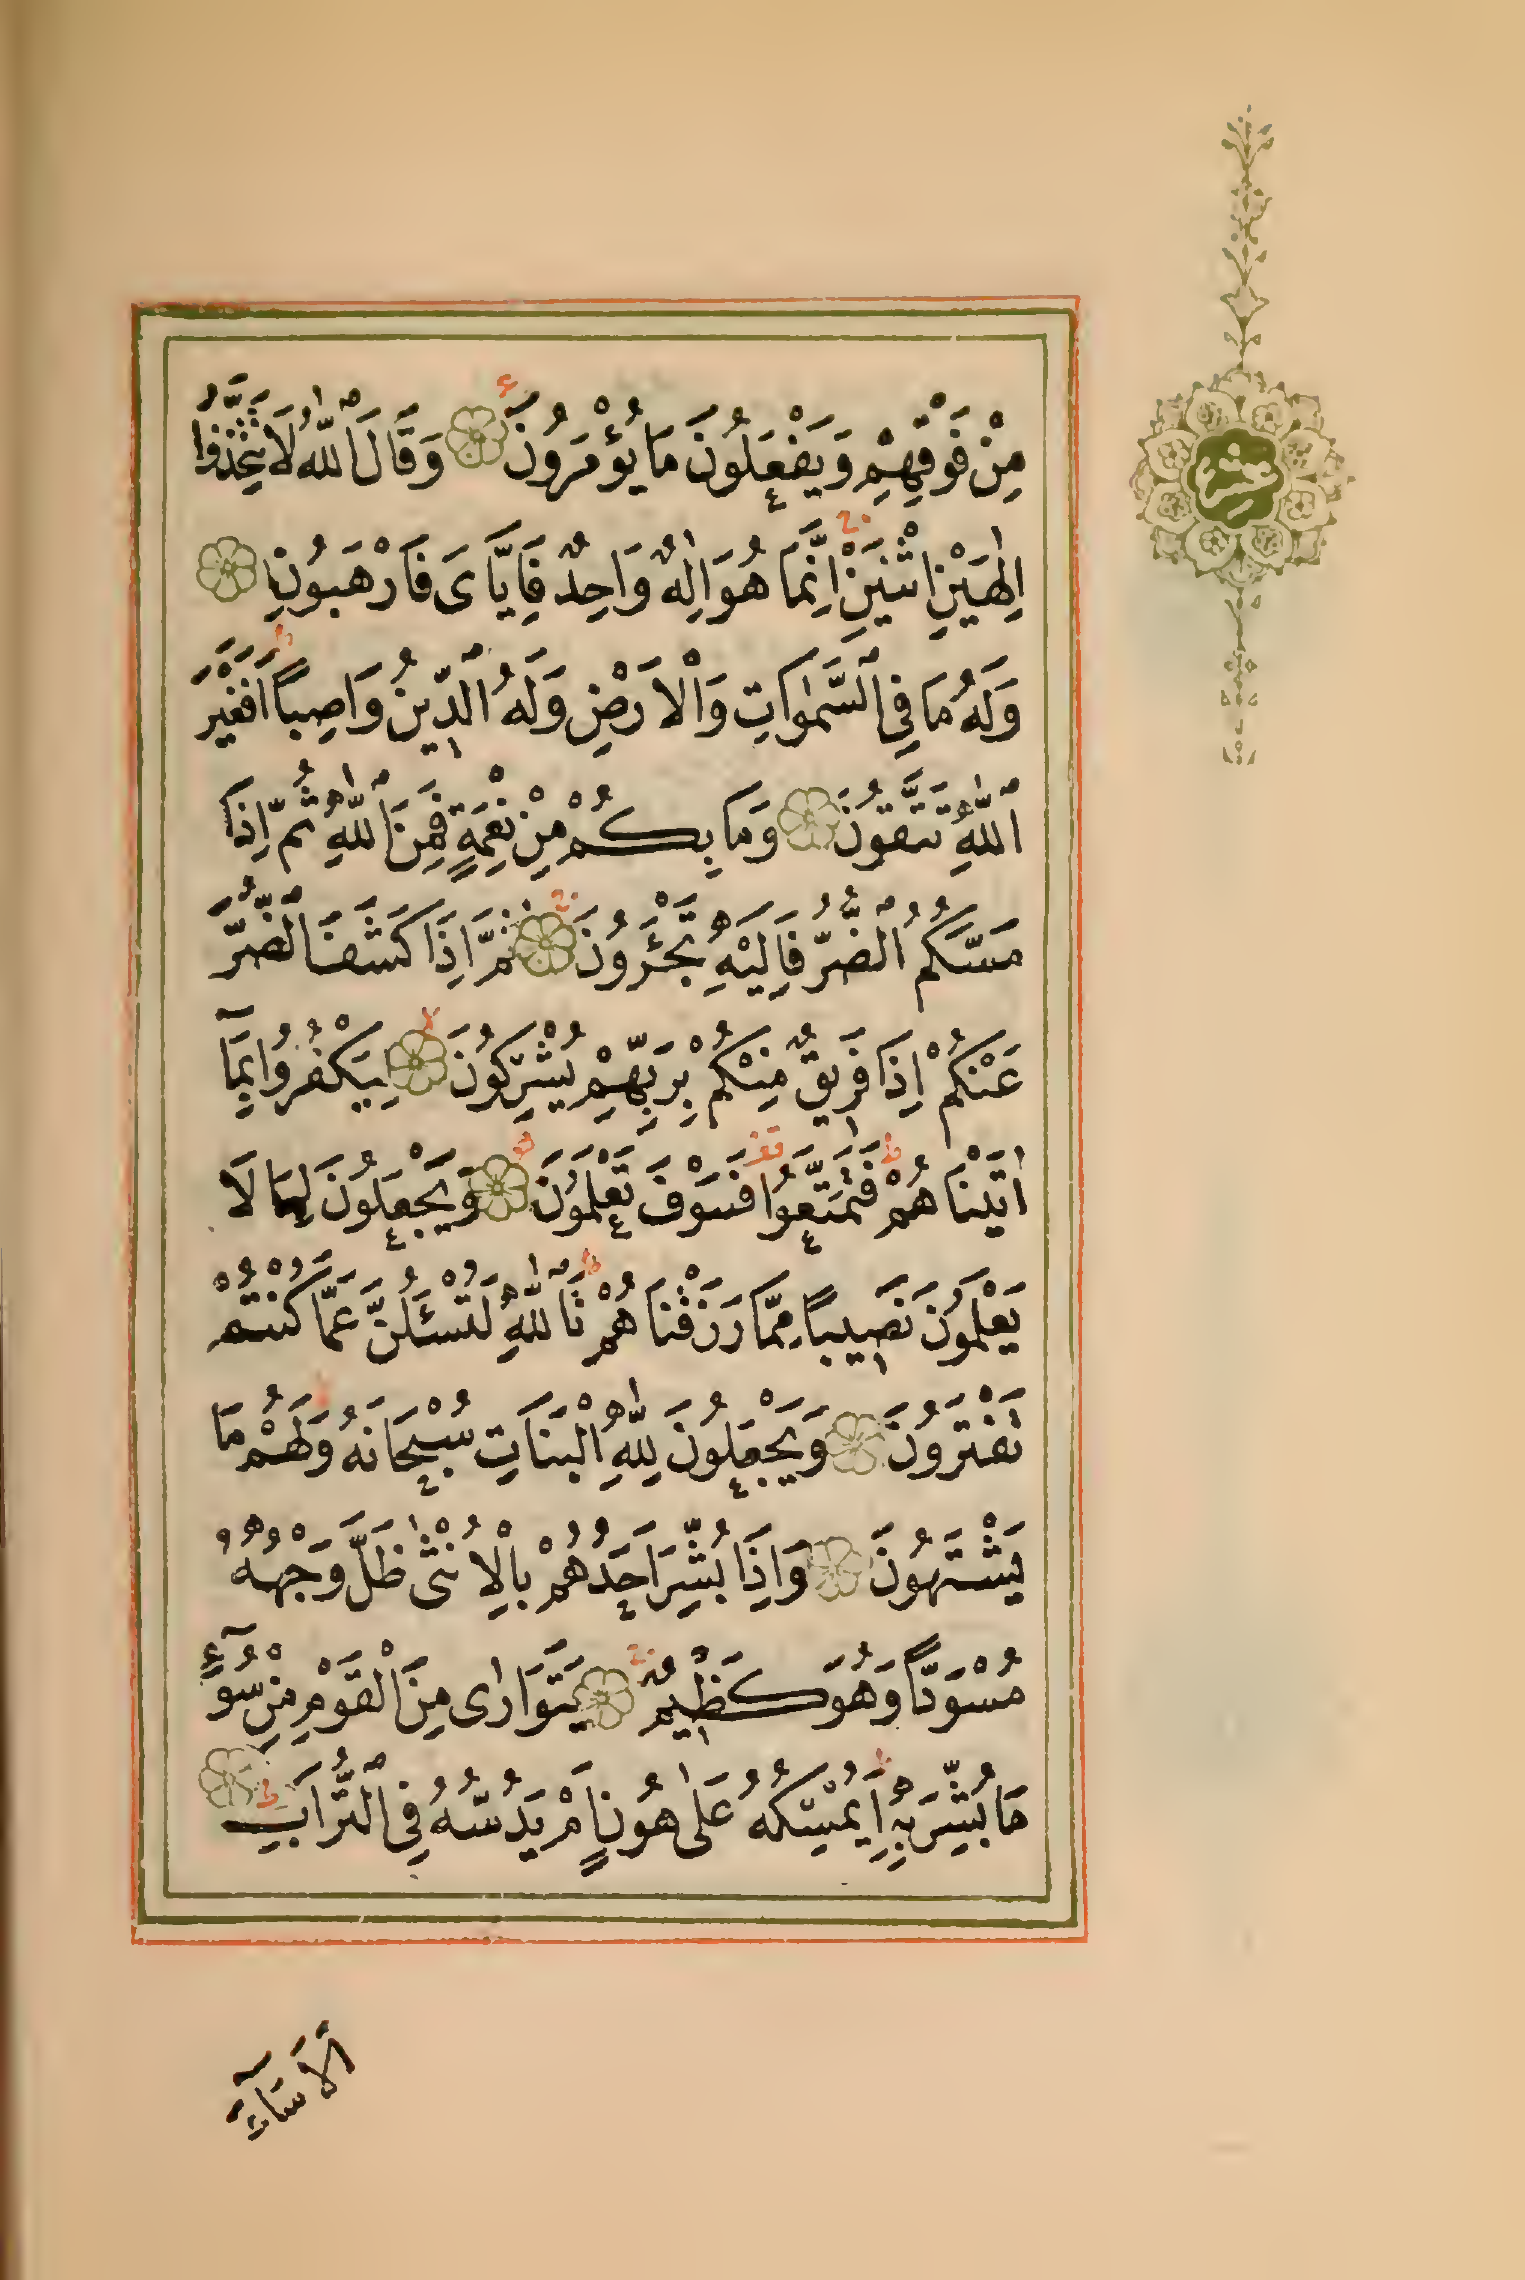 مِنْ فَوْقِهِمْ وَيَفْعَلُونَ مَا يُؤْمَرُونَ وَقَالَ اللّٰهُ لَا تَتَّخِذُوا
اِلٰهَيْنِ اثْنَيْنِ اِنَّمَا هُوَ اِلٰهٌ وَاحِدٌ فَاِيَّاىَ فَارْهَبُونِ
وَلَهُ مَا فِى السَّمٰوَاتِ وَالْاَرْضِ وَلَهُ الدِّينُ وَاصِبًا اَفَغَيْرَ
اللّٰهِ تَتَّقُونَ وَمَا بِكُمْ مِنْ نِعْمَةٍ فَمِنَ اللّٰهِ ثُمَّ اِذَا
مَسَّكُمُ الضُّرُّ فَاِلَيْهِ تَجْئَرُونَ ثُمَّ اِذَا كَشَفَ الضُّرَّ
عَنْكُمْ اِذَا فَرِيقٌ مِنْكُمْ بِرَبِّهِمْ يُشْرِكُونَ لِيَكْفُرُوا بِمَآ
اٰتَيْنَاهُمْ فَتَمَتَّعُوا فَسَوْفَ تَعْلَمُونَ وَيَجْعَلُونَ لِمَا لَا
يَعْلَمُونَ نَصِيبًا مِمَّا رَزَقْنَاهُمْ تَاللّٰهِ لَتُسْئَلُنَّ عَمَّا كُنْتُمْ
تَفْتَرُونَ وَيَجْعَلُونَ لِلّٰهِ الْبَنَاتِ سُبْحَانَهُ وَلَهُمْ مَا
يَشْتَهُونَ وَاِذَا بُشِّرَ اَحَدُهُمْ بِالْاُنْثٰى ظَلَّ وَجْهُهُ
مُسْوَدًّا وَهُوَ كَظِيمٌ يَتَوَارٰى مِنَ الْقَوْمِ مِنْ سُوٓءِ
مَا بُشِّرَ بِهِ اَيُمْسِكُهُ عَلٰى هُونٍ اَمْ يَدُسُّهُ فِى التُّرَابِ
اَلَا سَآءَ